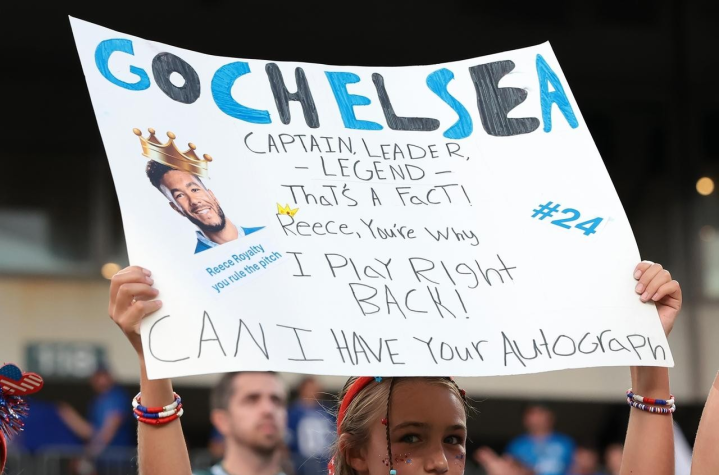 GO CHELSEA
CAPTAIN, LEADER,
- LEGEND -
THAT'S A FACT!
Reece, You're Why
I Play Right
BACK!
CAN I HAVE YOUR AUTOGRAPH
#24
Reece Royalty
you rule the pitch
118